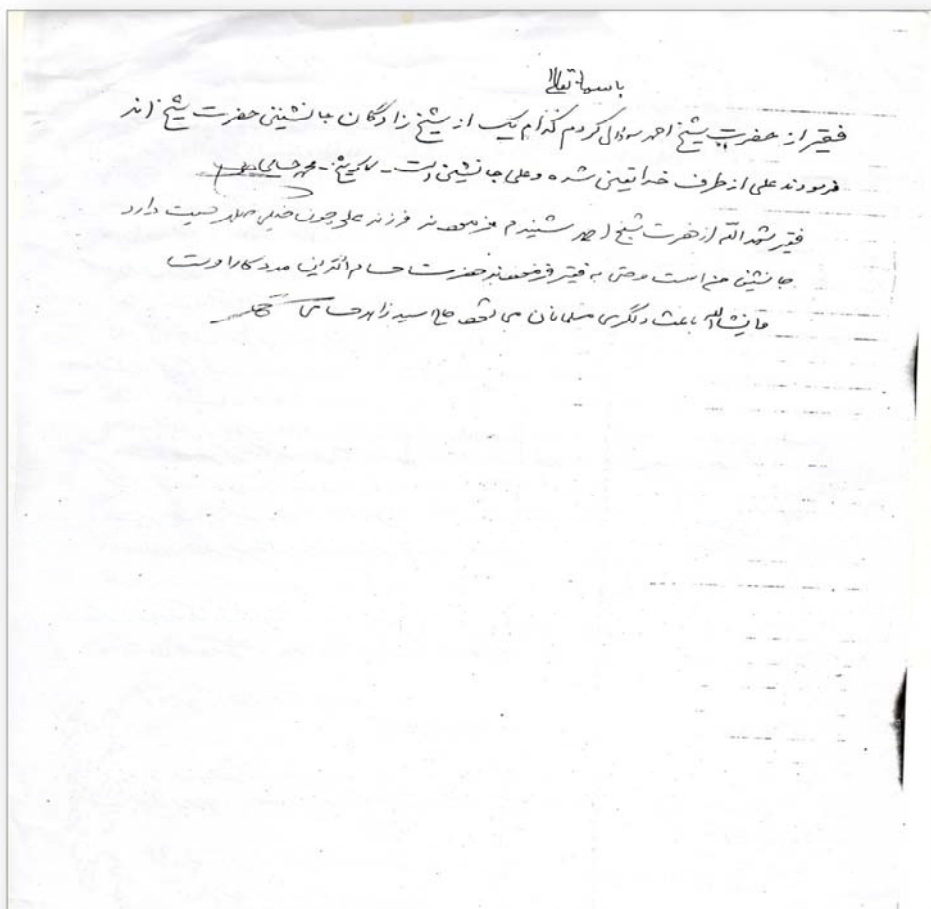 باسمه تعالی
فقیر از حضرت شیخ احمد سوال کردم کدام یک از شیخ زادگان جانشینی حضرت شیخ اند
فرمودند علی از طرف خدا تعیین شده و علی جانشین است -
فقیر شهد الله از حضرت شیخ احمد شنیدم فرمودند فرزند علی چون خیلی صلاحیت دارد
جانشین من است و حتی به فقیر فرمودند حضرت حسام الدین مدد کار اوست
مانشاالله باعث دلگرمی مسلمانان می شود حاج سید زاهد حسامی